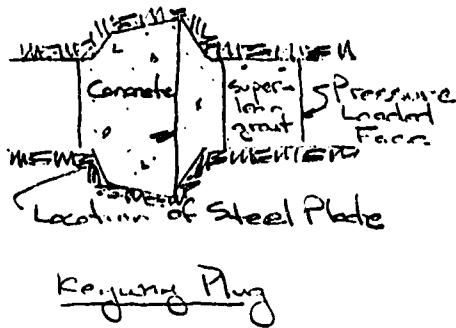 Concrete
Super-
lean
grout
Pressure
Loaded
Face
Location of Steel Plate
Keyway Plug